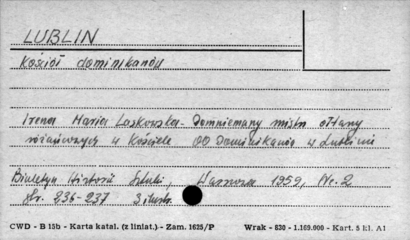 LUBLIN
Kościół dominikanów
Irena Maria Laskowska - Domniemany mistrz ołtarzy
różańcowych w Kościele OO Dominikanów w Lublinie
Biuletyn Historii Sztuki, Warszawa 1959, Nr. 2
str. 236-237
CWD - B 15b - Karta katal. (z liniat.) - Zam. 1625/P Wrak - 838 - 1.165.000 - Kart. 5 kl. A1